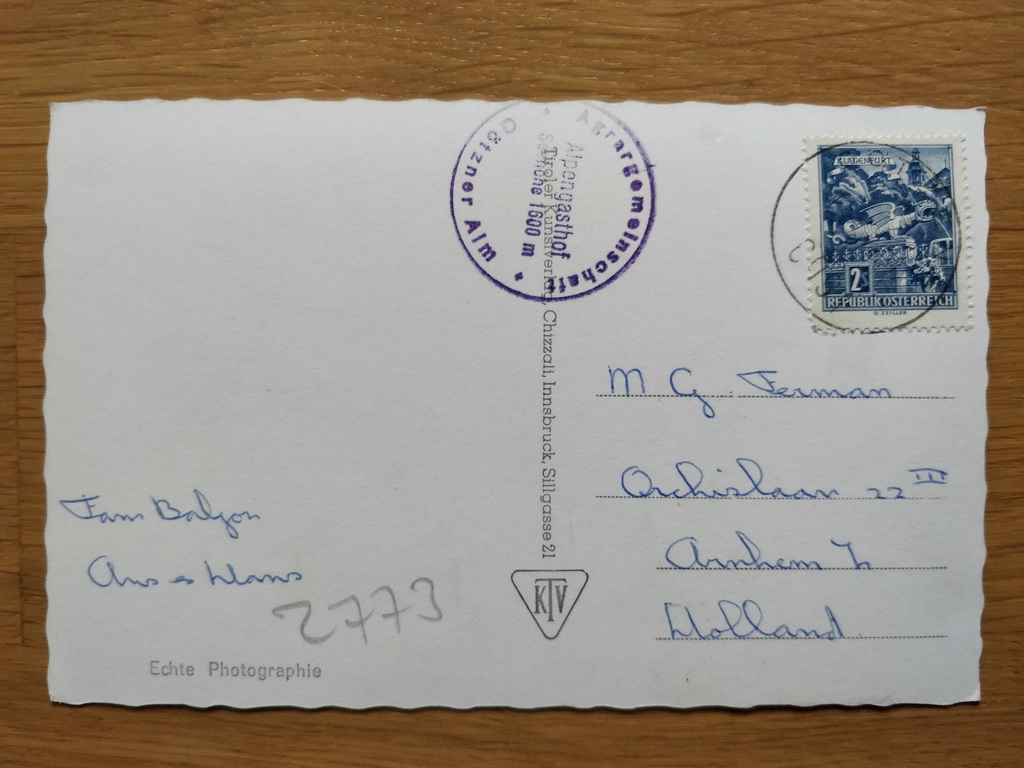 Agrargemeinschaft
Götzner Alm
Alpengasthof
Seehöhe 1600 m
Tiroler Kunstverlag, Chizzali, Innsbruck, Sillgasse 21
KTV
KLAGENFURT
2S
REPUBLIK ÖSTERREICH
G. ZEILLER
M G. Ferman
Orchislaan 22 III
Arnhem
Holland
Fam Baljon
Ans en Hans
2773
Echte Photographie